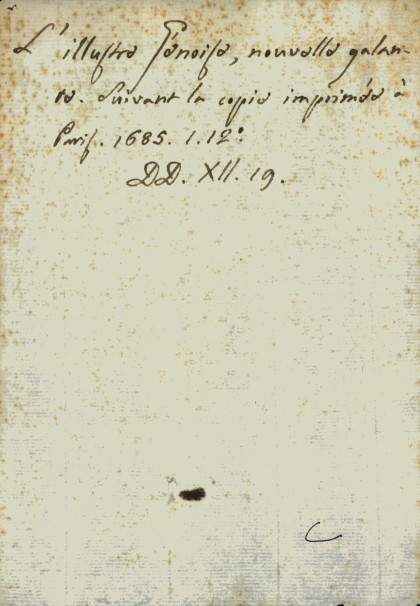 L'illustre Génoise, nouvelle galan-
te. Suivant la copie imprimée à
Paris. 1685. 1. 12º.
DD. XII. 19.